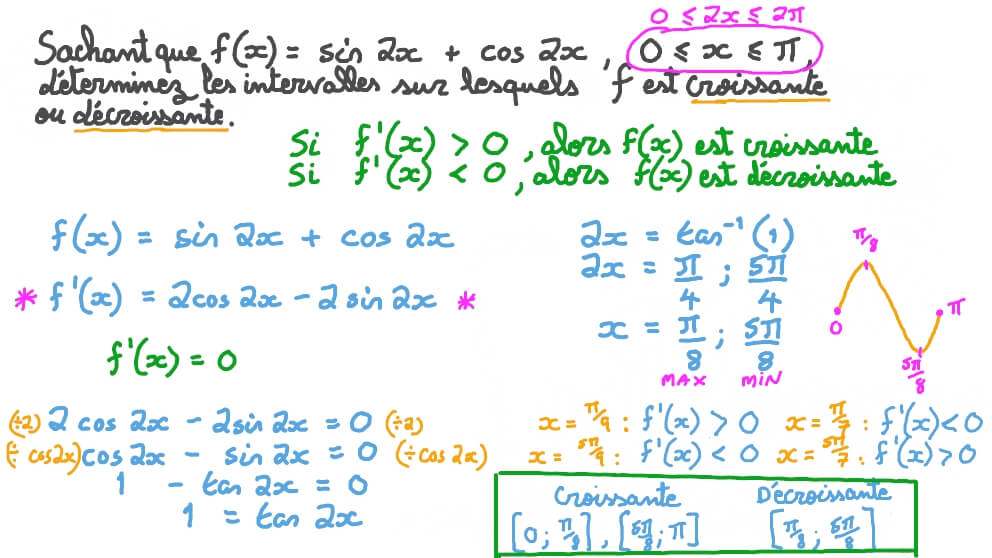 0 ≤ 2x ≤ 2π
Sachant que f(x) = sin 2x + cos 2x , 0 ≤ x ≤ π,
déterminez les intervalles sur lesquels f est croissante
ou décroissante.
Si f'(x) > 0 , alors f(x) est croissante
Si f'(x) < 0 , alors f(x) est décroissante
f(x) = sin 2x + cos 2x
* f'(x) = 2cos 2x - 2 sin 2x *
f'(x) = 0
(÷2) 2 cos 2x - 2sin 2x = 0 (÷2)
(÷ cos2x) cos 2x - sin 2x = 0 (÷cos 2x)
1 - tan 2x = 0
1 = tan 2x
2x = tan⁻¹(1)
2x = π/4 ; 5π/4
x = π/8 ; 5π/8
MAX MIN
π/8
0 π
5π/8
x = π/9 : f'(x) > 0 x = π/7 : f'(x) < 0
x = 5π/9 : f'(x) < 0 x = 5π/7 : f'(x) > 0
Croissante Décroissante
[0 ; π/8] , [5π/8 ; π] [π/8 ; 5π/8]